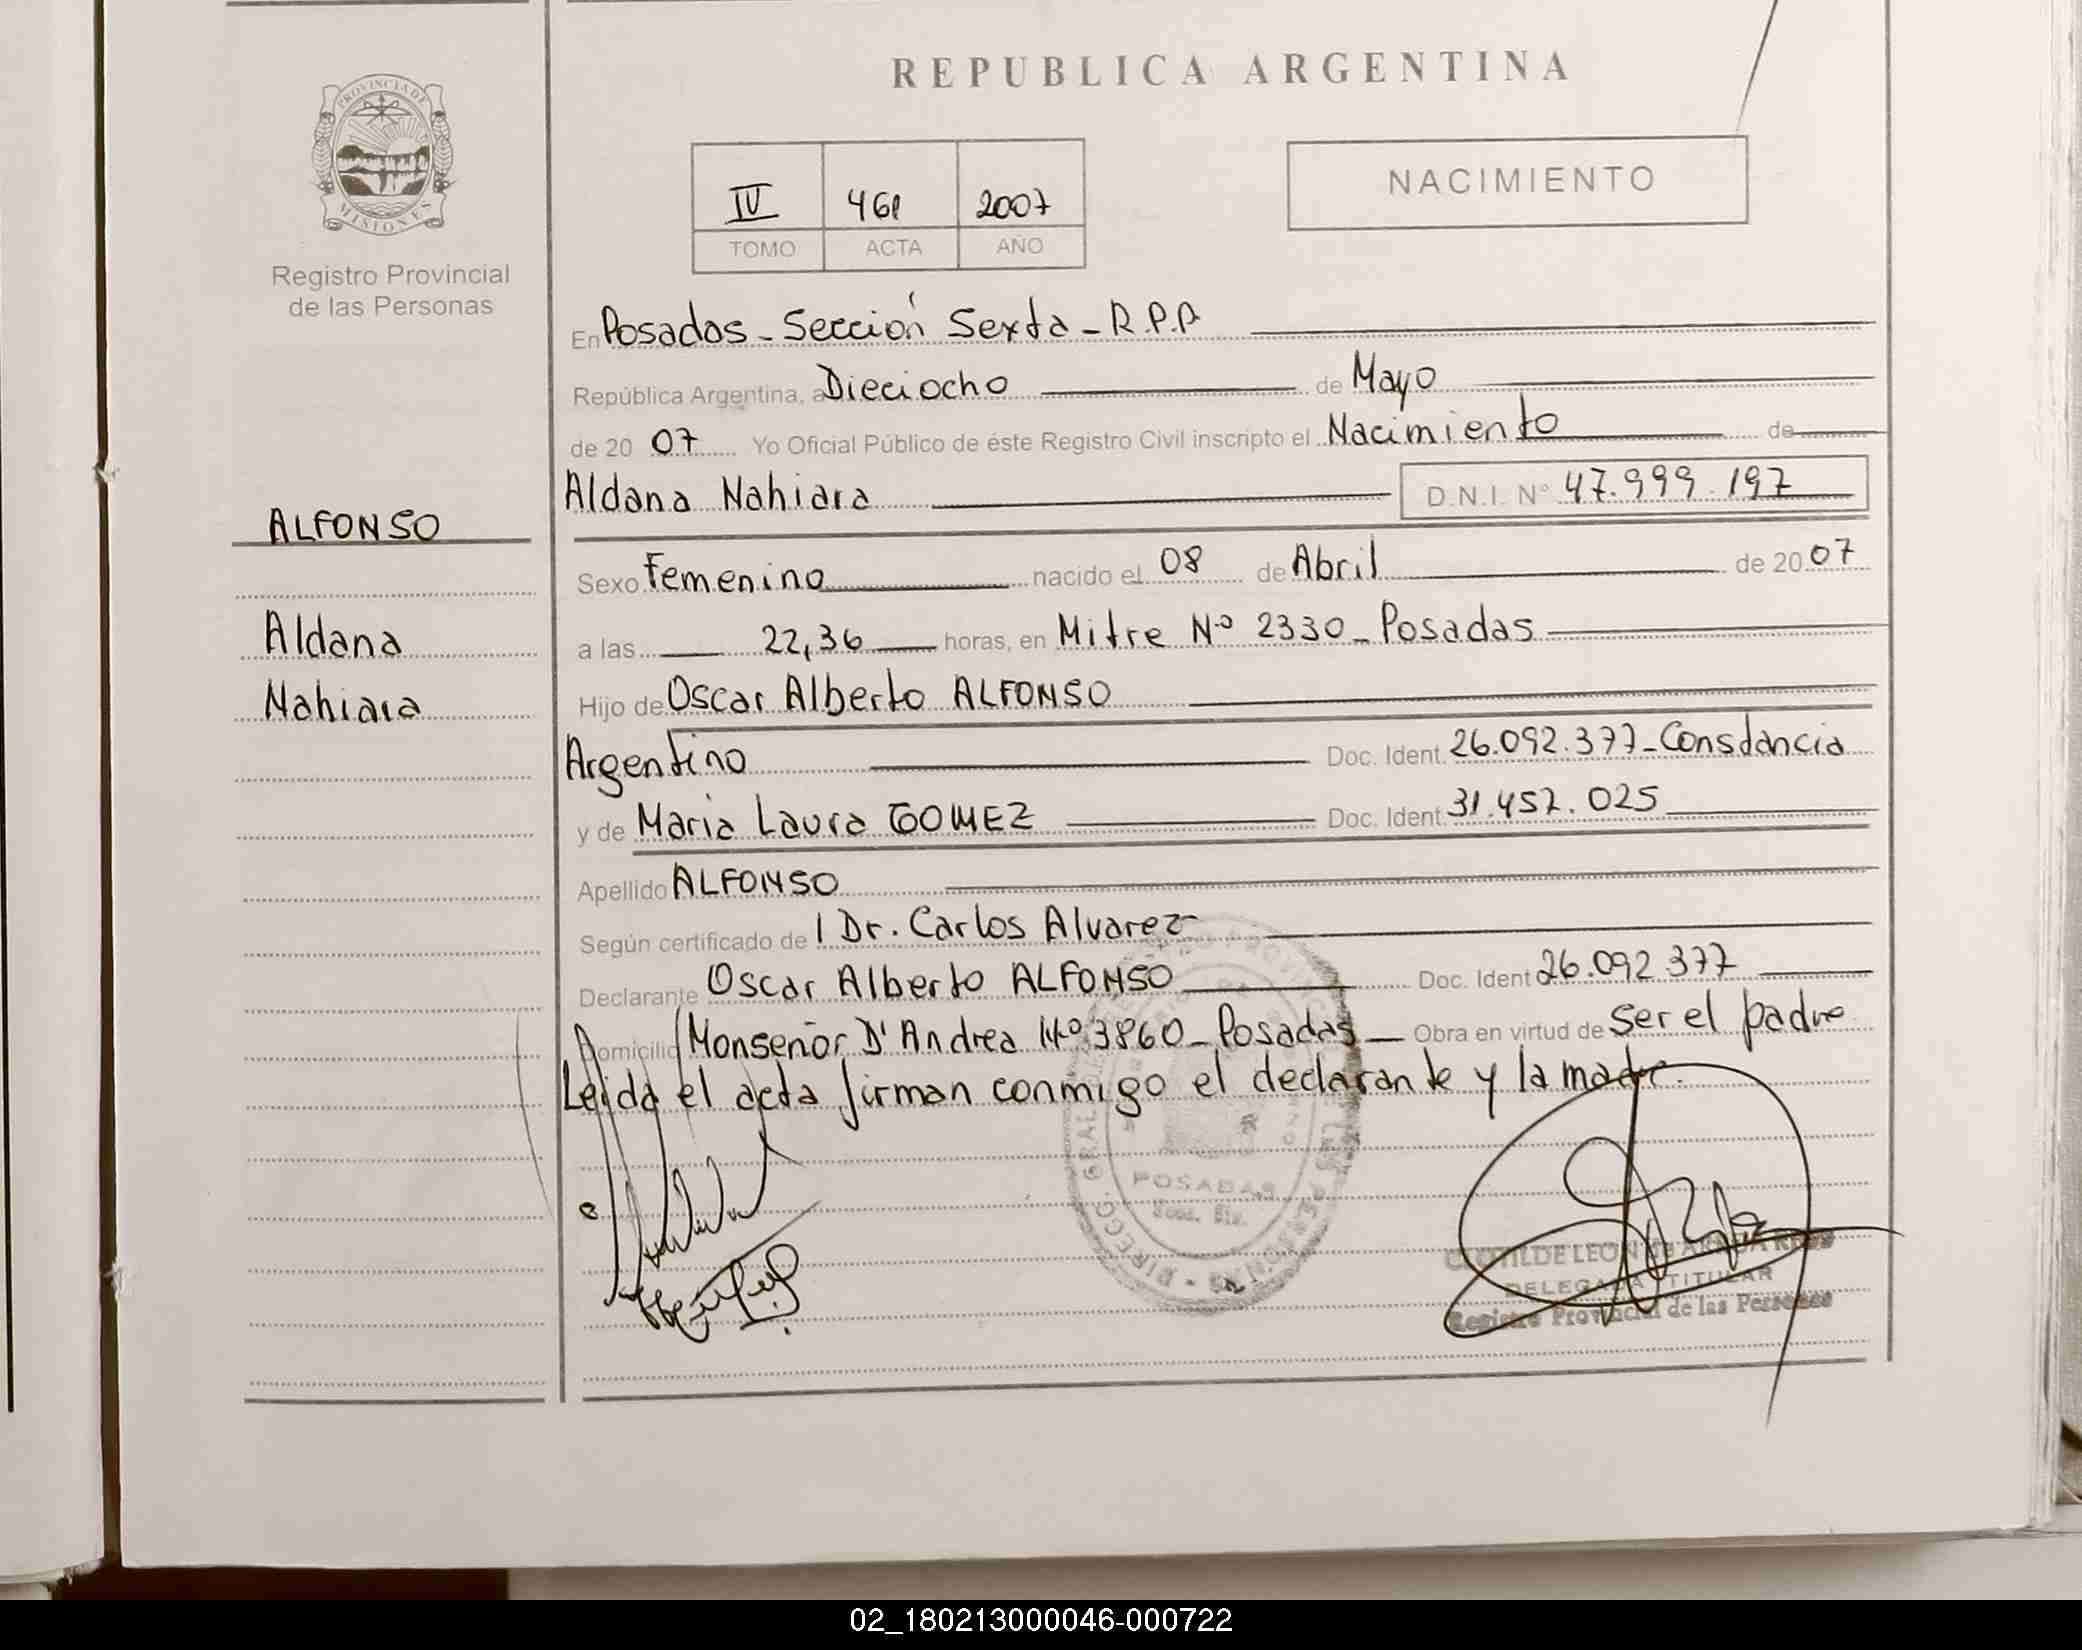 REPUBLICA ARGENTINA
PROVINCIA DE
MISIONES
Registro Provincial
de las Personas
IV 461 2007
TOMO ACTA AÑO
NACIMIENTO
En Posadas - Sección Sexta - R.P.P
República Argentina, a Dieciocho de Mayo
de 20 07 Yo Oficial Público de éste Registro Civil inscripto el Nacimiento de
Aldana Nahiara D.N.I. Nº 47.999.197
ALFONSO
Aldana
Nahiara
Sexo Femenino nacido el 08 de Abril de 20 07
a las 22,36 horas, en Mitre Nº 2330 - Posadas
Hijo de Oscar Alberto ALFONSO
Argentino Doc. Ident. 26.092.377 - Constancia
y de Maria Laura GOMEZ Doc. Ident. 31.457.025
Apellido ALFONSO
Según certificado de l Dr. Carlos Alvarez
Declarante Oscar Alberto ALFONSO Doc. Ident 26.092.377
Domicilio Monseñor D'Andrea Nº 3860 - Posadas Obra en virtud de Ser el padre
Leida el acta firman conmigo el declarante y la madre.
POSADAS
DELEGADA TITULAR
Registro Provincial de las Personas
02_180213000046-000722